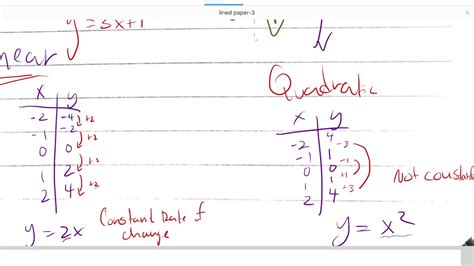 lined paper-3
y=3x+1
near
Quadratic
x y
-2 -4 +2
-1 -2 +2
0 0
1 2 +2
2 4 +2
x y
-2 4 -3
-1 1 -1
0 0 +1
1 1 +3
2 4
Not constan
y = 2x
Constant Rate of
change
y = x²